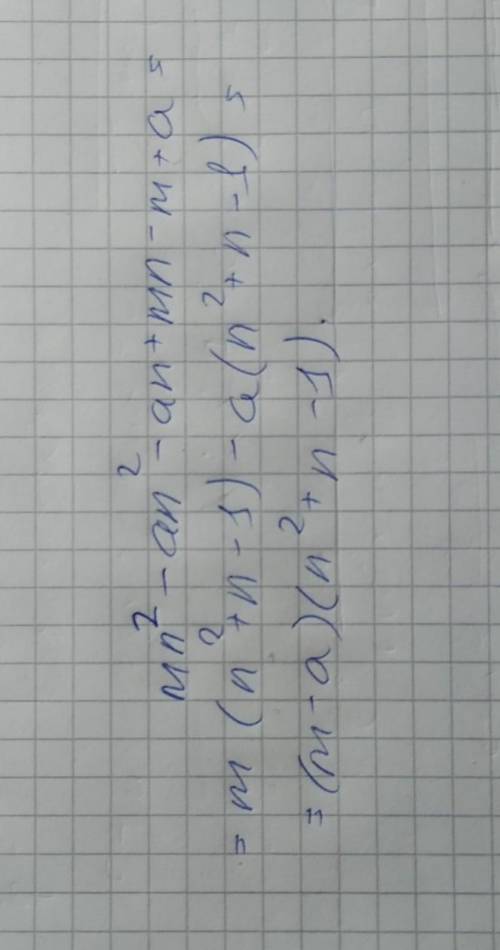 mn² - an² - an + mn - m + a =
= m (n² + n - 1) - a (n² + n - 1) =
= (m - a)(n² + n - 1).